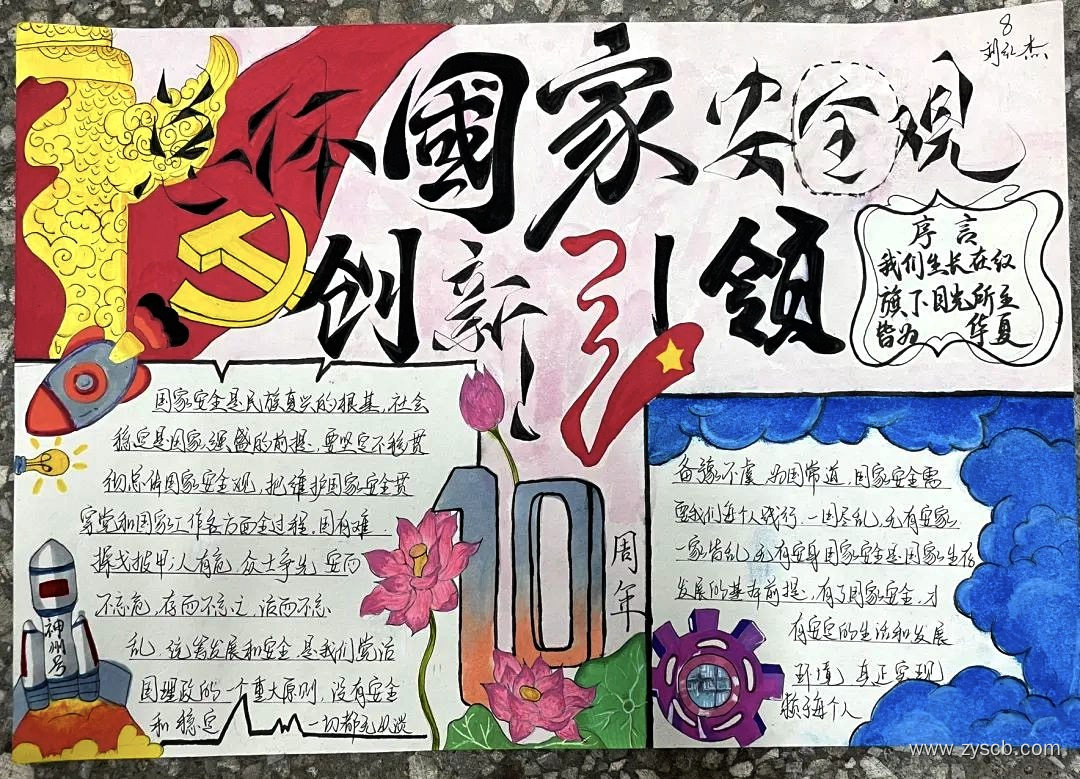 8
刘红杰
总体國家安全观
创新引领
序言
我们生长在红
旗下目光所至
皆为 华夏
国家安全是民族复兴的根基,社会
稳定是国家强盛的前提,要坚定不移贯
彻总体国家安全观,把维护国家安全贯
穿党和国家工作各方面全过程,国有难
操戈披甲,人有危,众士争先,安而
不忘危,存而不忘亡,治而不忘
乱,统筹发展和安全是我们党治
国理政的一个重大原则,没有安全
和稳定 一切都无从谈
神州号
10
周年
备豫不虞,为国常道,国家安全需
要我们每个人践行,一国尽乱,无有安家
一家皆乱,无有安身国家安全是国家生存
发展的基本前提,有了国家安全,才
有安定的生活和发展
环境,真正实现
赖于每个人
www.zyscb.com